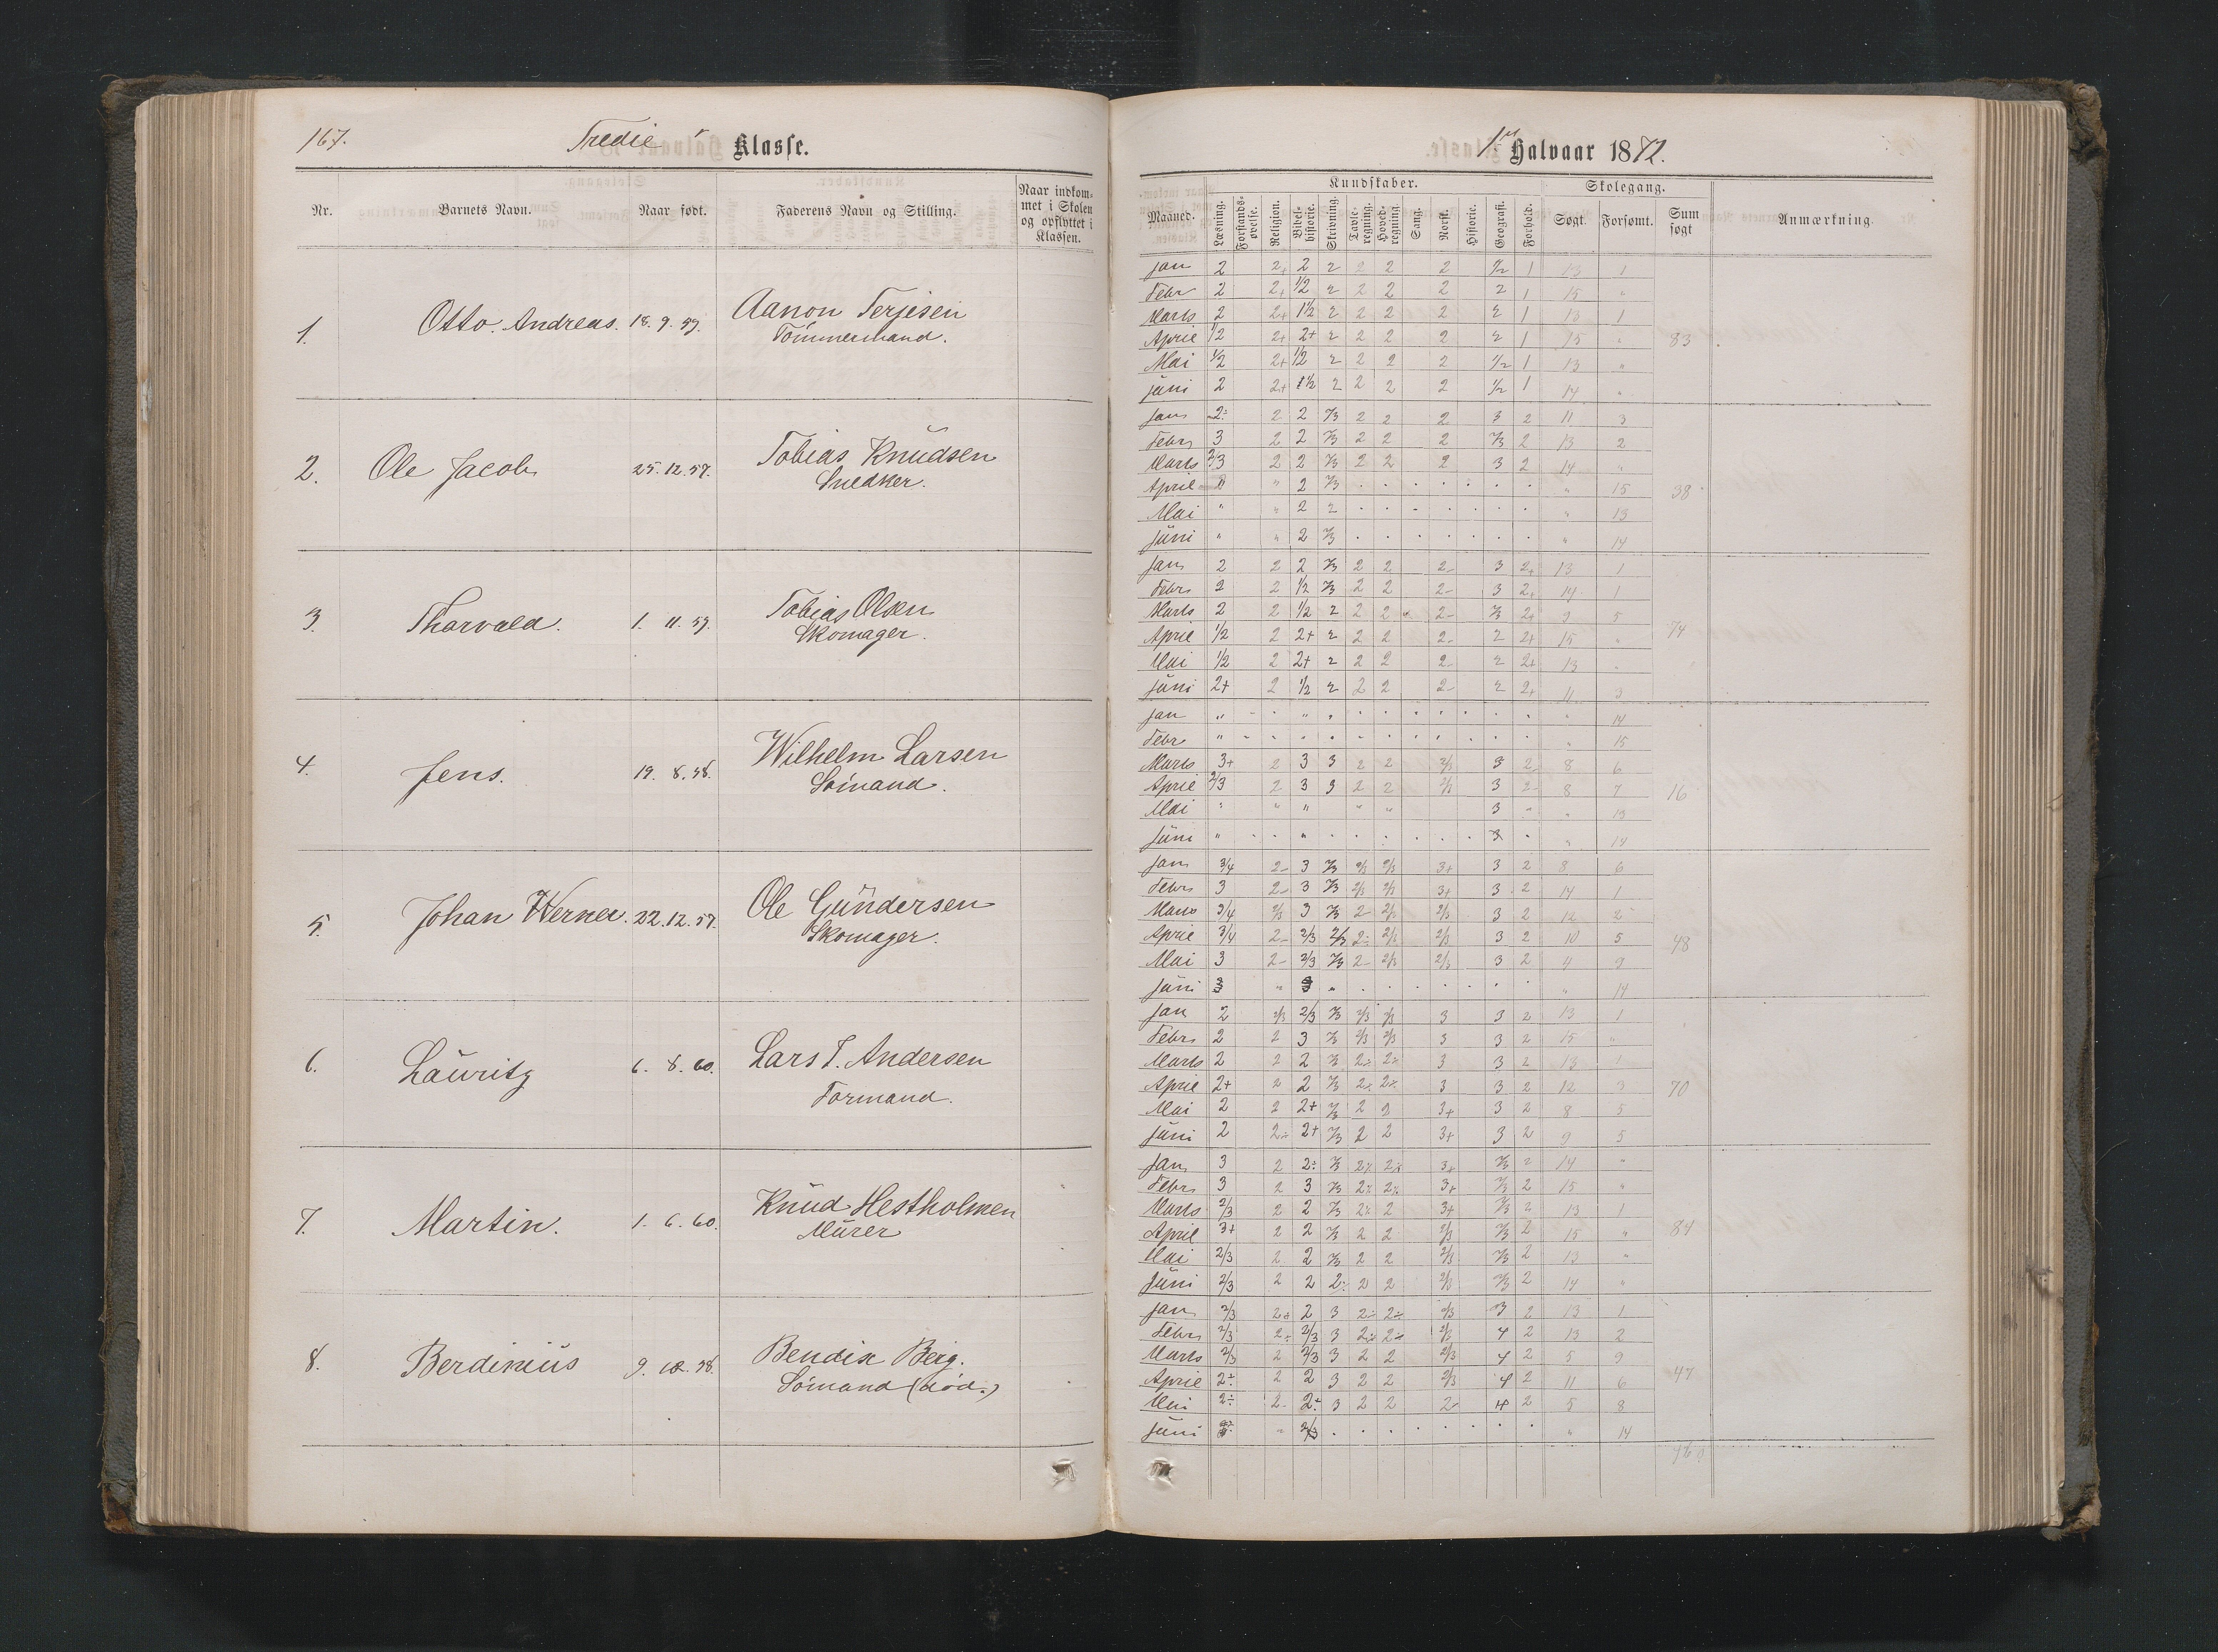 167.
Tredie Klasse.
Nr. Barnets Navn. Naar født. Faderens Navn og Stilling. Naar indkommet i Skolen og opflyttet i Klassen.
1. Otto Andreas. 18. 9. 59. Aanon Terjesen
Tömmermand.
2. Ole Jacob 25. 12. 57. Tobias Knudsen
Snedker.
3. Thorvald. 1. 11. 59. Tobias Olsen
Skomager.
4. Jens. 19. 8. 58. Wilhelm Larsen
Sömand.
5. Johan Werner. 22. 12. 57. Ole Gundersen
Skomager.
6. Lauritz 6. 8. 60. Lars T. Andersen
Formand.
7. Martin. 1. 6. 60. Knud Hestholmen
Murer
8. Berdinius 9. 58. Bendix Berg.
Sömand (död.)
1ste Halvaar 1872.
Kundskaber. Skolegang.
Maaned. Læsning. Forstands-øvelse. Religion. Bibel-historie. Skrivning. Tavle-regning. Hoved-regning. Sang. Norsk. Historie. Geografi. Forhold. Søgt. Forsømt. Sum søgt Anmærkning.
Jan 2 2+ 2 2 2 2 2 1/2 1 13 1
Febr 2 2+ 1/2 2 2 2 2 2 1 15 "
Marts 2 2+ 1½ 2 2 2 2 2 1 13 1
April 1/2 2+ 2+ 2 2 2 2 2 1 15 " 83
Mai 1/2 2+ 1/2 2 2 2 2 1/2 1 13 "
Juni 2 2+ 1½ 2 2 2 2 1/2 1 14 "
Jan 2÷ 2 2 2/3 2 2 2 3 2 11 3
Febr 3 2 2 2/3 2 2 2 2/3 2 13 2
Marts 2/3 2 2 2/3 2 2 2 3 2 14 "
April " 2 2/3 " 15 38
Mai " " 2 2 " 13
Juni " " 2 2/3 " 14
Jan 2 2 2 2/3 2 2 2- 3 2+ 13 1
Febr 2 2 1/2 2/3 2 2 2- 3 2+ 14 1
Marts 2 2 1/2 2 2 2 2- 2/3 2+ 9 5
April 1/2 2 2+ 2 2 2 2- 2 2+ 15 " 74
Mai 1/2 2 2+ 2 2 2 2- 2 2+ 13 "
Juni 2+ 2 1/2 2 2 2 2- 2 2+ 11 3
Jan " " " 14
Febr " " 15
Marts 3+ 2 3 3 2 2 2/3 3 2- 8 6
April 2/3 2 3 3 2 2 2/3 3 2- 8 7 16
Mai " " " " " 3 " " 13
Juni " " 3 " 14
Jan 3/4 2- 3 2/3 2/3 2/3 3+ 3 2 8 6
Febr 3 2- 3 2/3 2/3 2/3 3+ 3 2 14 1
Marts 3/4 2/3 3 2/3 2- 2/3 2/3 3 2 12 2
April 3/4 2- 2/3 2/3 2÷ 2/3 2/3 3 2 10 5 48
Mai 3 2- 2/3 2/3 2- 2/3 2/3 3 2 4 9
Juni 3 " 3 " " 14
Jan 2 2/3 2/3 2/3 2/3 2/3 3 3 2 13 1
Febr 2 2 3 2/3 2/3 2/3 3 3 2 15 "
Marts 2 2 2 2/3 2÷ 2÷ 3 3 2 13 1
April 2+ 2 2 2/3 2÷ 2÷ 3 3 2 12 3 70
Mai 2 2 2+ 2/3 2 2 3+ 3 2 8 5
Juni 2 2÷ 2+ 2/3 2 2 3+ 3 2 9 5
Jan 3 2 2÷ 2/3 2÷ 2÷ 3+ 2/3 2 14 "
Febr 3 2 3 2/3 2÷ 2÷ 3+ 2/3 2 15 "
Marts 2/3 2 2 2/3 2÷ 2 3+ 2/3 2 13 1
April 3+ 2 2 2/3 2 2 2/3 2/3 2 15 " 84
Mai 2/3 2 2 2/3 2 2 2/3 2/3 2 13 "
Juni 2/3 2 2 2÷ 2 2 2/3 2/3 2 14 "
Jan 2/3 2÷ 2 3 2÷ 2÷ 2/3 3 2 13 1
Febr 2/3 2÷ 2/3 3 2÷ 2÷ 2/3 4 2 13 2
Marts 2/3 2 2/3 3 2 2 2/3 4 2 5 9
April 2÷ 2 2 3 2 2 2/3 4 2 11 6 47
Mai 2÷ 2- 2÷ 3 2 2 2- 4 2 5 8
Juni " 2/3 " 14